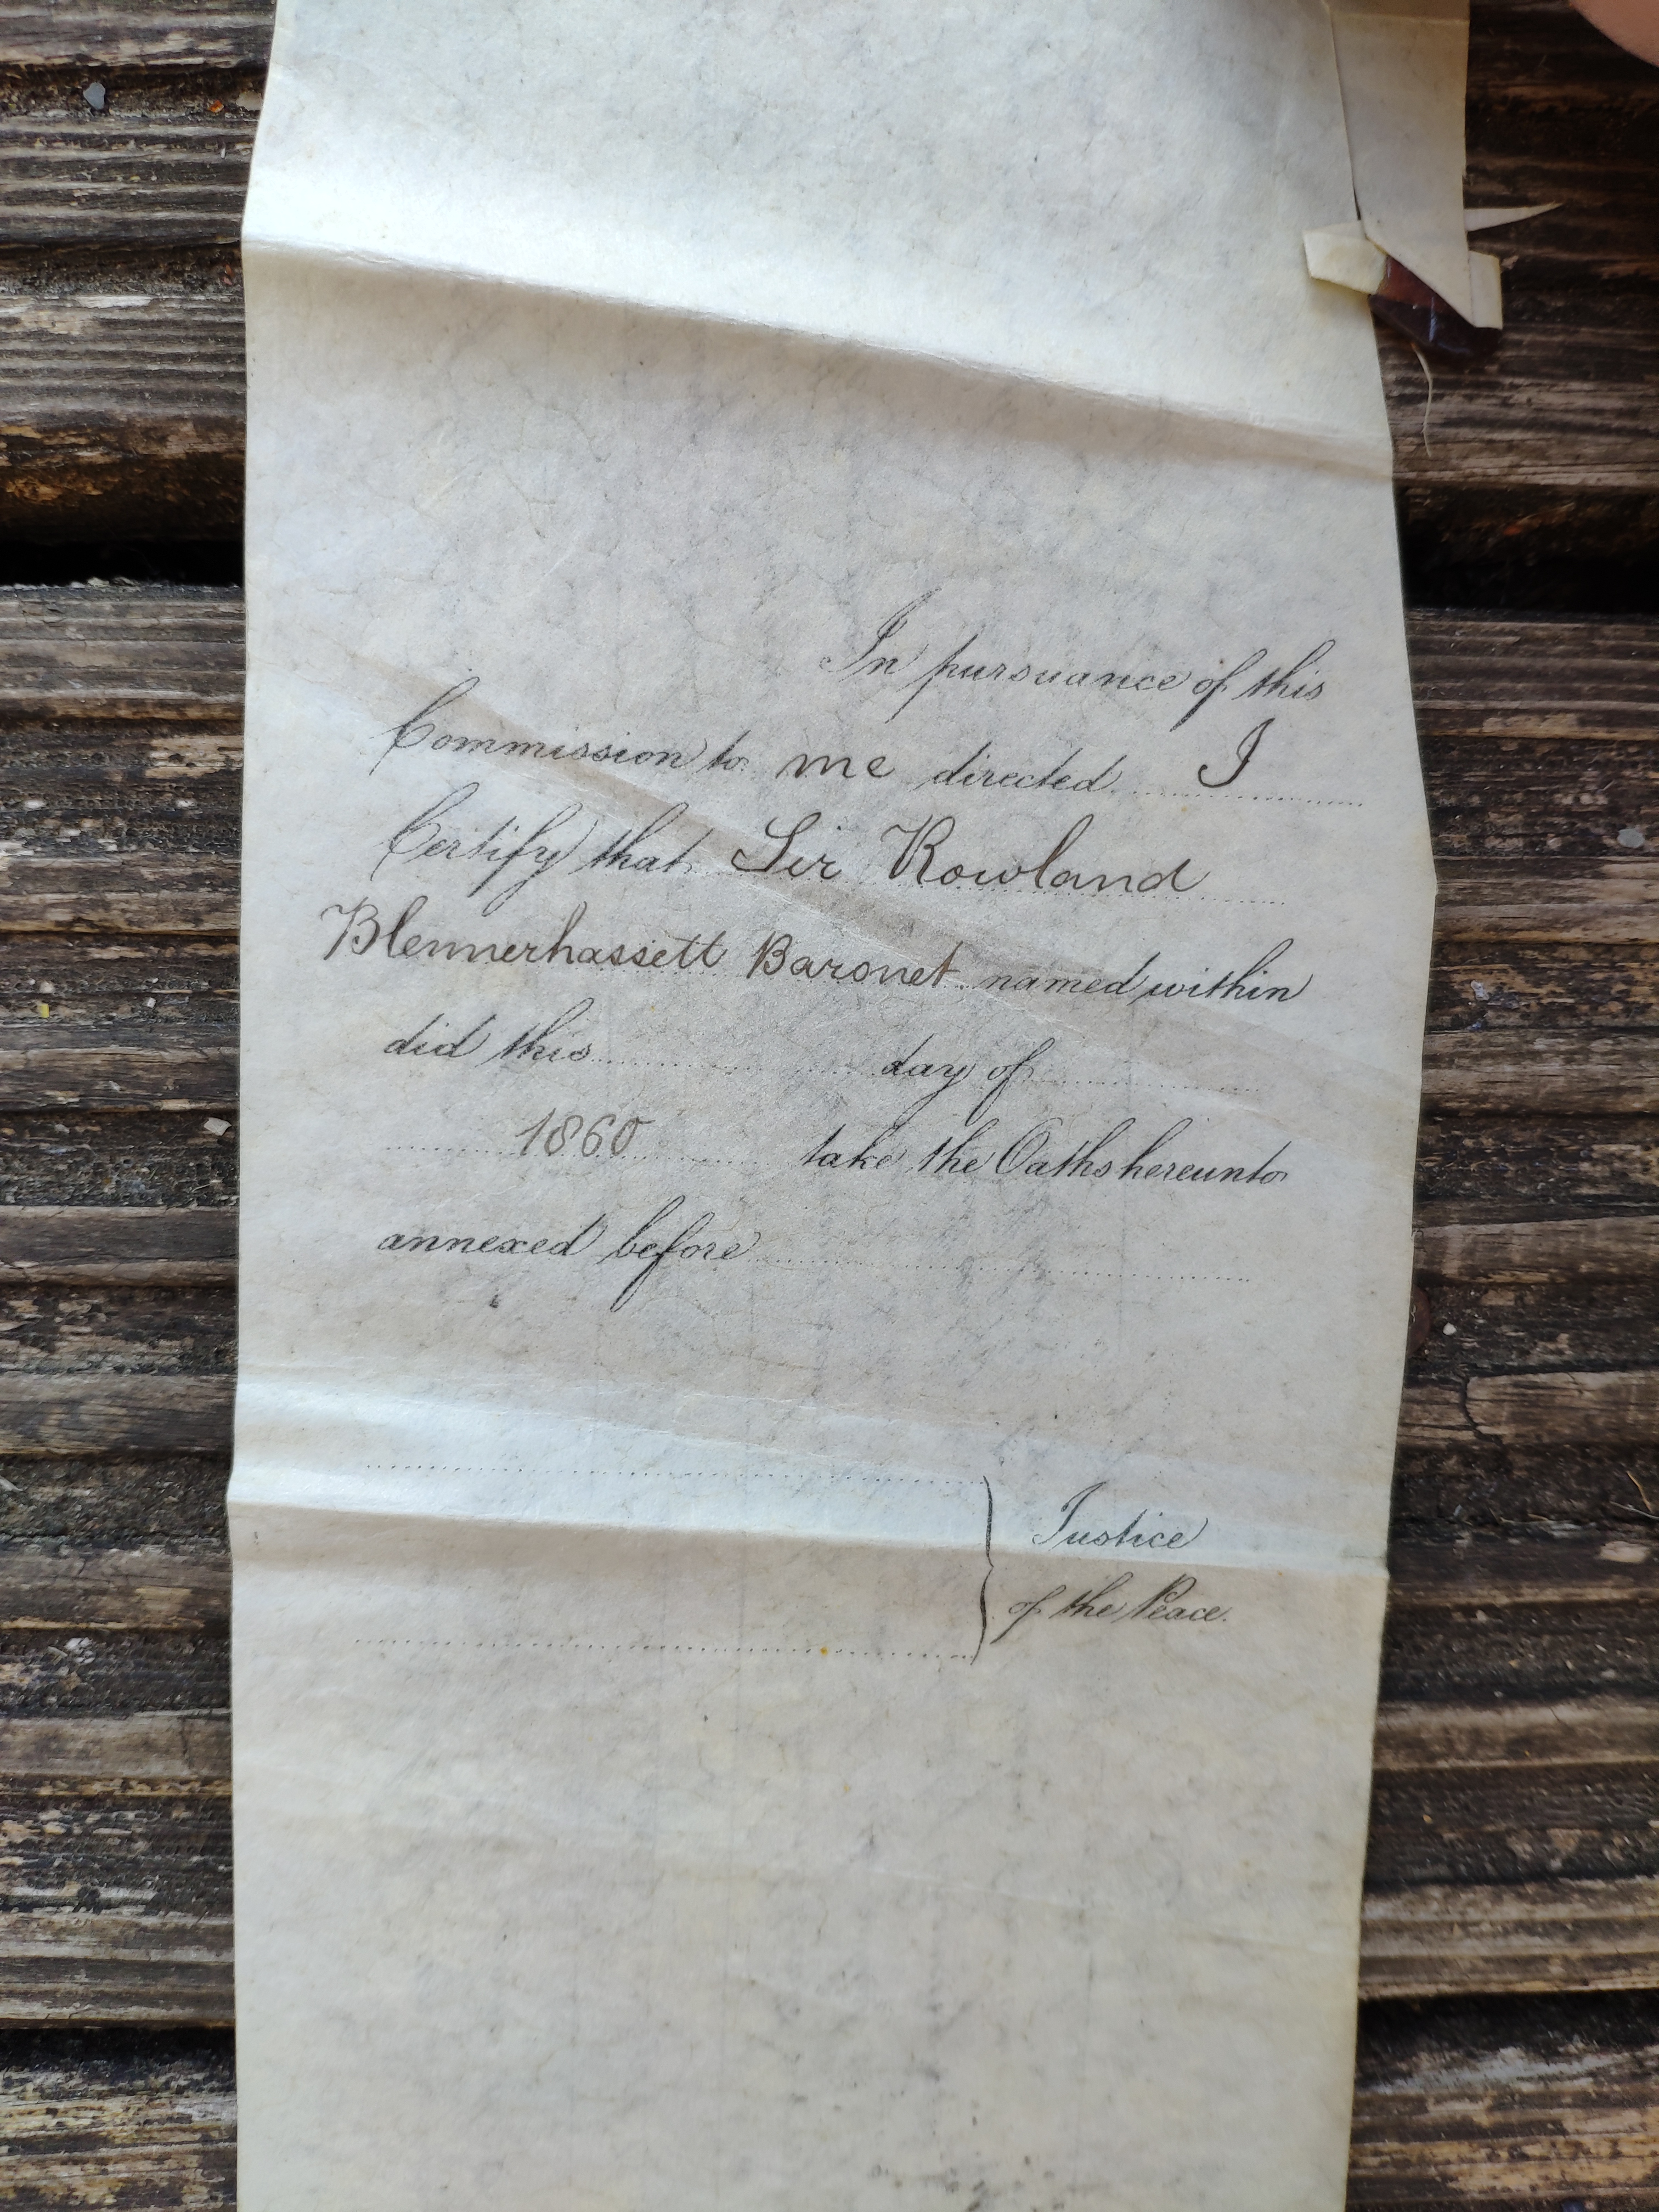 In pursuance of this
Commission to me directed I
Certify that Sir Rowland
Blennerhassett Baronet named within
did this day of
1860 take the Oaths hereunto
annexed before
Justice
of the Peace.